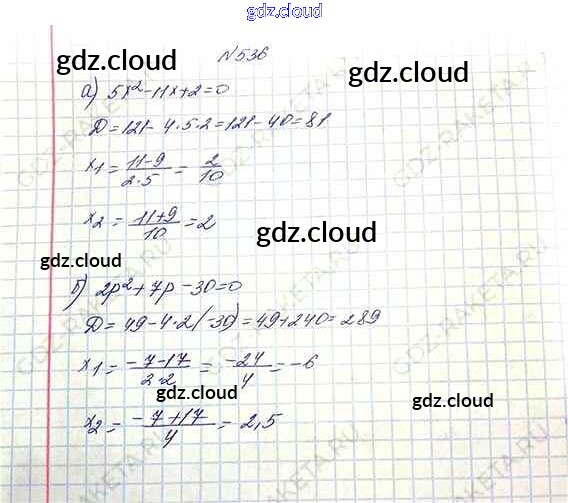 gdz.cloud
gdz.cloud
gdz.cloud
№536
а) 5x²-11x+2=0
D=121-4·5·2=121-40=81
x1=\frac{11-9}{2·5}=\frac{2}{10}
x2=\frac{11+9}{10}=2
gdz.cloud
gdz.cloud
б) 2p²+7p-30=0
D=49-4·2(-30)=49+240=289
x1=\frac{-7-17}{2·2}=\frac{-24}{4}=-6
gdz.cloud
gdz.cloud
x2=\frac{-7+17}{4}=2,5
GDZ-RAKETA.RU